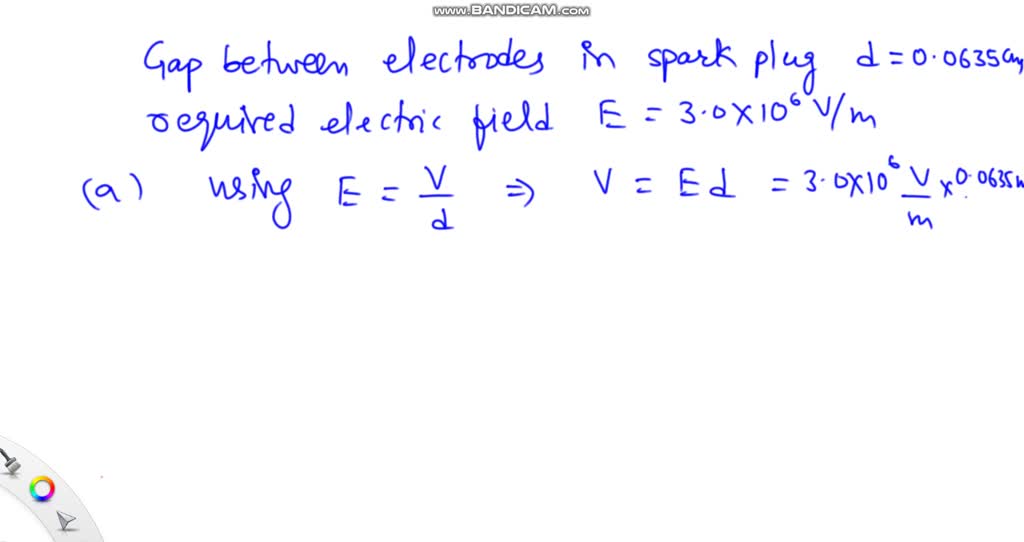 www.BANDICAM.com
Gap between electrodes in spark plug d = 0.0635 cm
required electric field E = 3.0 × 10⁶ V/m
(a) using E = V/d ⇒ V = Ed = 3.0×10⁶ V/m × 0.0635